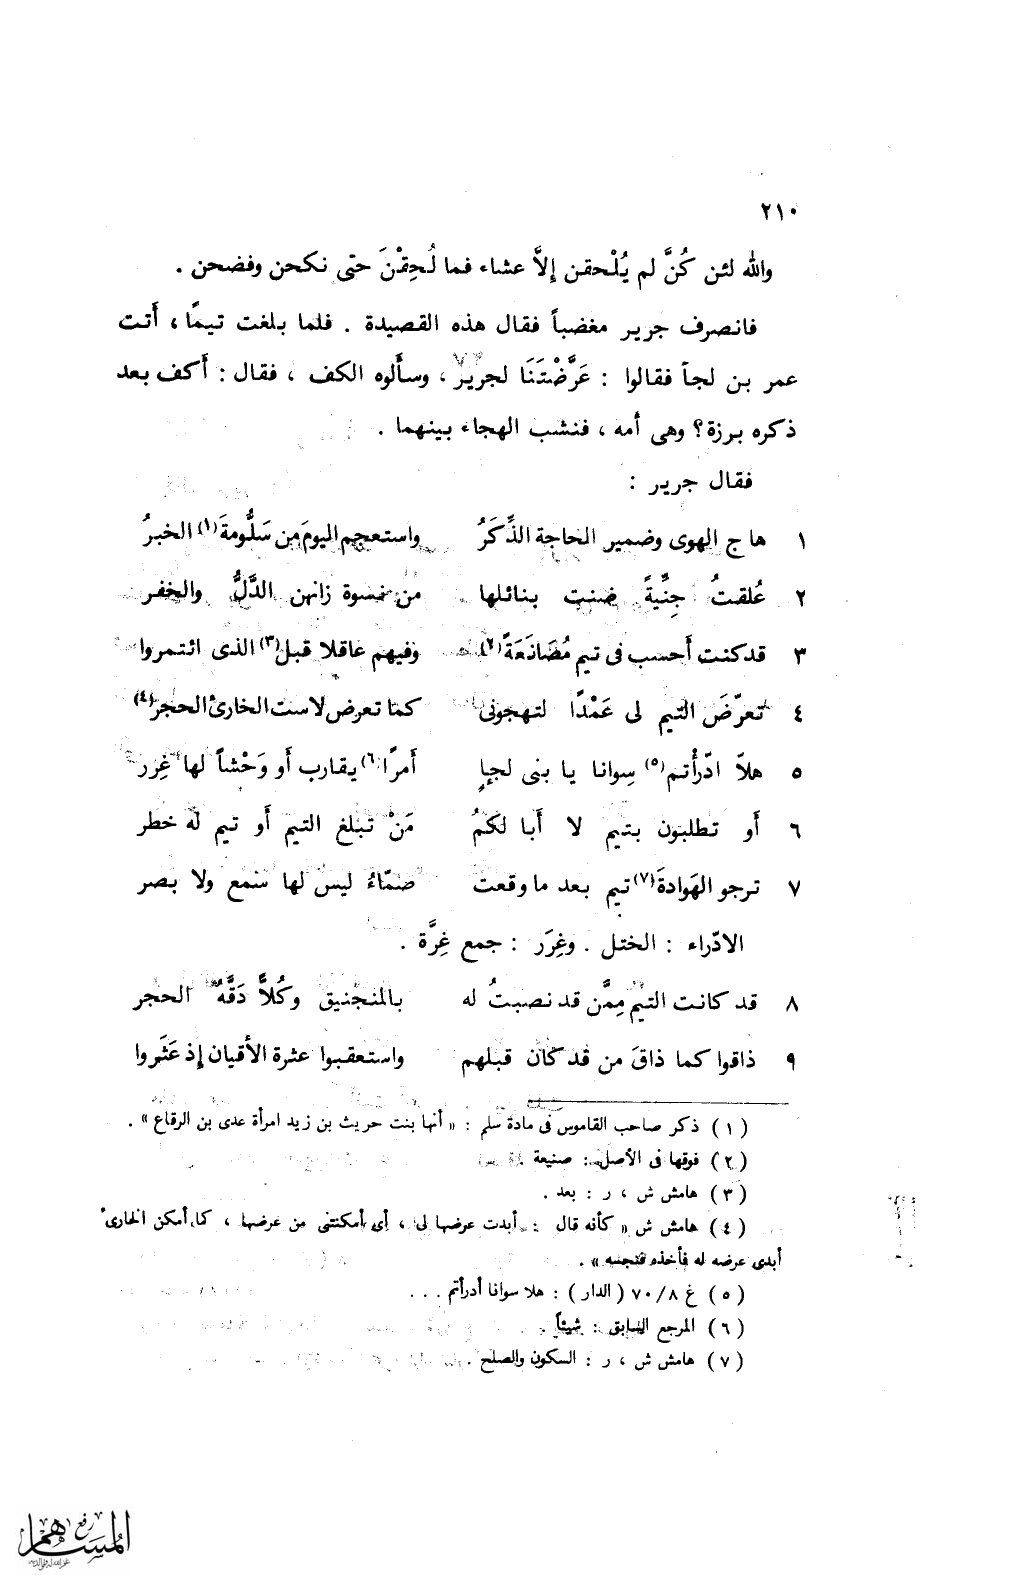 ٢١٠
والله لئن كُنَّ لم يُلْحقن إلاَّ عشاء فما لُحِقْنَ حتى نكحن وفضحن .
فانصرف جرير مغضباً فقال هذه القصيدة . فلما بلغت تيمًا ، أتت
عمر بن لجأ فقالوا : عَرَّضْتَنَا لجرير ، وسألوه الكف ، فقال : أكف بعد
ذكره برزة ؟ وهى أمه ، فنشب الهجاء بينهما .
فقال جرير :
١ هاج الهوى وضمير الحاجة الذِّكَرُ واستعجم اليومَ من سَلُّومةَ (١) الخبرُ
٢ عُلقتُ جِنِّيةً ضنت بنائلها من نسوة زانهن الدَّلُّ والخفر
٣ قد كنت أحسب فى تيم مُصَانَعَةً (٢) وفيهم عاقلا قبل (٣) الذى ائتمروا
٤ تعرّضَ التيم لى عَمْدًا لتهجونى كما تعرض لاست الخارئ الحجر (٤)
٥ هلاّ ادّرأْتم (٥) سِوانا يا بنى لجإٍ أمرًا (٦) يقارب أو وَحْشاً لها غِرر
٦ أو تطلبون بتيم لا أبا لكمُ مَنْ تبلغ التيم أو تيم له خطر
٧ ترجو الهَوادةَ (٧) تيم بعد ما وقعت صمّاءُ ليس لها سمع ولا بصر
الادّراء : الختل . وغِرَر : جمع غِرَّة .
٨ قد كانت التيم مِمَّن قد نصبتُ له بالمنجنيق وكُلاًّ دَقَّهُ الحجر
٩ ذاقوا كما ذاقَ من قد كان قبلهم واستعقبوا عثرة الأقيان إذ عَثَروا
(١) ذكر صاحب القاموس فى مادة سلم : « أنها بنت حريث بن زيد امرأة عدى بن الرقاع » .
(٢) فوقها فى الأصل : صنيعة .
(٣) هامش ش ، ر : بعد .
(٤) هامش ش « كأنه قال : أبدت عرضها لى ، أى أمكنتنى من عرضها ، كما أمكن الخارئ
أبدى عرضه له فأخذه فتجسه » .
(٥) غ ٨/٧٠ (الدار) : هلا سوانا أدرأتم . . .
(٦) المرجع السابق : شيئاً
(٧) هامش ش ، ر : السكون والصلح .